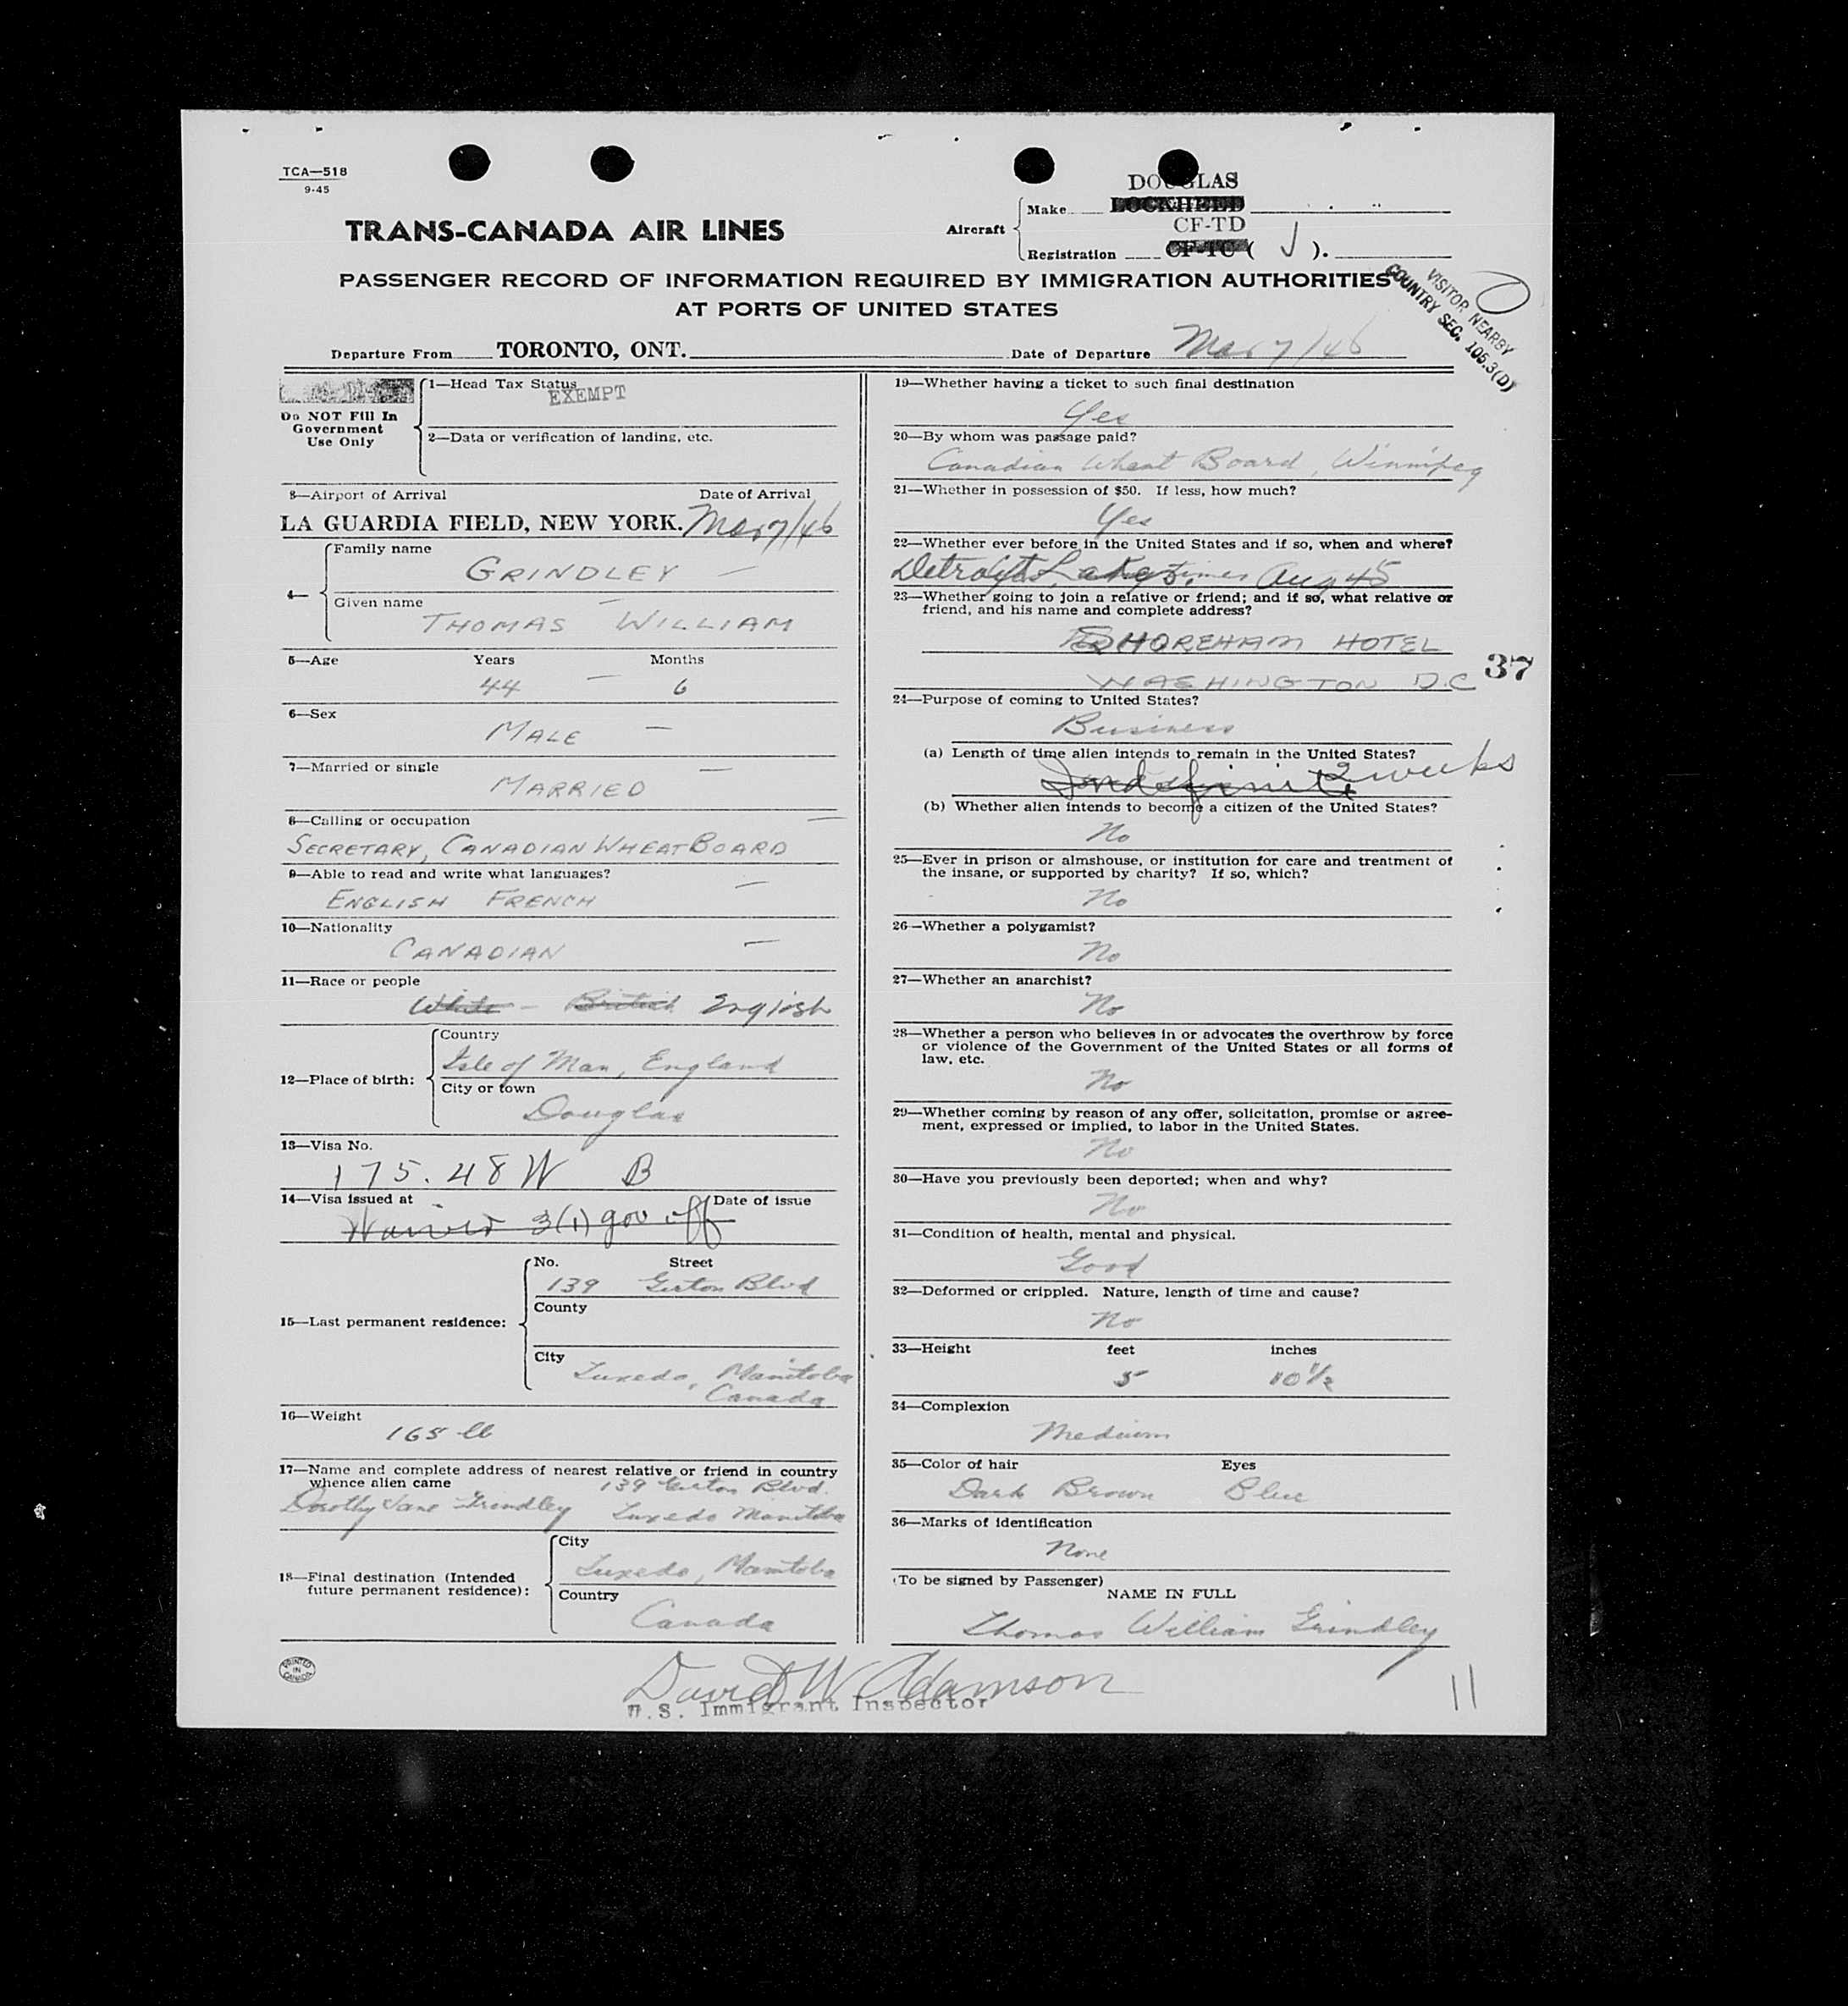 TCA—518
9-45
TRANS-CANADA AIR LINES
Aircraft
DOUGLAS
Make LOCKHEED
CF-TD
Registration CF-TC ( J ).
PASSENGER RECORD OF INFORMATION REQUIRED BY IMMIGRATION AUTHORITIES
AT PORTS OF UNITED STATES
VISITOR NEARBY
COUNTRY SEC. 105.3(D)
Departure From TORONTO, ONT. Date of Departure Mar 7/46
Do NOT Fill In
Government
Use Only
1—Head Tax Status
EXEMPT
2—Data or verification of landing, etc.
3—Airport of Arrival Date of Arrival
LA GUARDIA FIELD, NEW YORK. Mar 7/46
4—
Family name
GRINDLEY —
Given name
THOMAS — WILLIAM
5—Age Years Months
44 — 6
6—Sex
MALE —
7—Married or single
MARRIED —
8—Calling or occupation
SECRETARY, CANADIAN WHEAT BOARD —
9—Able to read and write what languages?
ENGLISH FRENCH —
10—Nationality
CANADIAN —
11—Race or people
White - British English
12—Place of birth:
Country
Isle of Man, England
City or town
Douglas
13—Visa No.
175.48W B
14—Visa issued at Date of issue
Waived 3(1) gov off
15—Last permanent residence:
No. Street
139 Girton Blvd
County
City
Tuxedo, Manitoba
Canada
16—Weight
165 lb
17—Name and complete address of nearest relative or friend in country
whence alien came 139 Girton Blvd.
Dorothy Jane Grindley Tuxedo Manitoba
18—Final destination (Intended
future permanent residence):
City
Tuxedo, Manitoba
Country
Canada
19—Whether having a ticket to such final destination
Yes
20—By whom was passage paid?
Canadian Wheat Board, Winnipeg
21—Whether in possession of $50. If less, how much?
Yes
22—Whether ever before in the United States and if so, when and where?
Detroit Aug 45
23—Whether going to join a relative or friend; and if so, what relative or
friend, and his name and complete address?
SHOREHAM HOTEL
WASHINGTON D.C
37
24—Purpose of coming to United States?
Business
(a) Length of time alien intends to remain in the United States?
Indefinite 2 weeks
(b) Whether alien intends to become a citizen of the United States?
No
25—Ever in prison or almshouse, or institution for care and treatment of
the insane, or supported by charity? If so, which?
No
26—Whether a polygamist?
No
27—Whether an anarchist?
No
28—Whether a person who believes in or advocates the overthrow by force
or violence of the Government of the United States or all forms of
law, etc.
No
29—Whether coming by reason of any offer, solicitation, promise or agree-
ment, expressed or implied, to labor in the United States.
No
30—Have you previously been deported; when and why?
No
31—Condition of health, mental and physical.
Good
32—Deformed or crippled. Nature, length of time and cause?
No
33—Height feet inches
5 10½
34—Complexion
Medium
35—Color of hair Eyes
Dark Brown Blue
36—Marks of identification
None
(To be signed by Passenger)
NAME IN FULL
Thomas William Grindley
PRINTED
IN
CANADA
David W Adamson
U.S. Immigrant Inspector
11